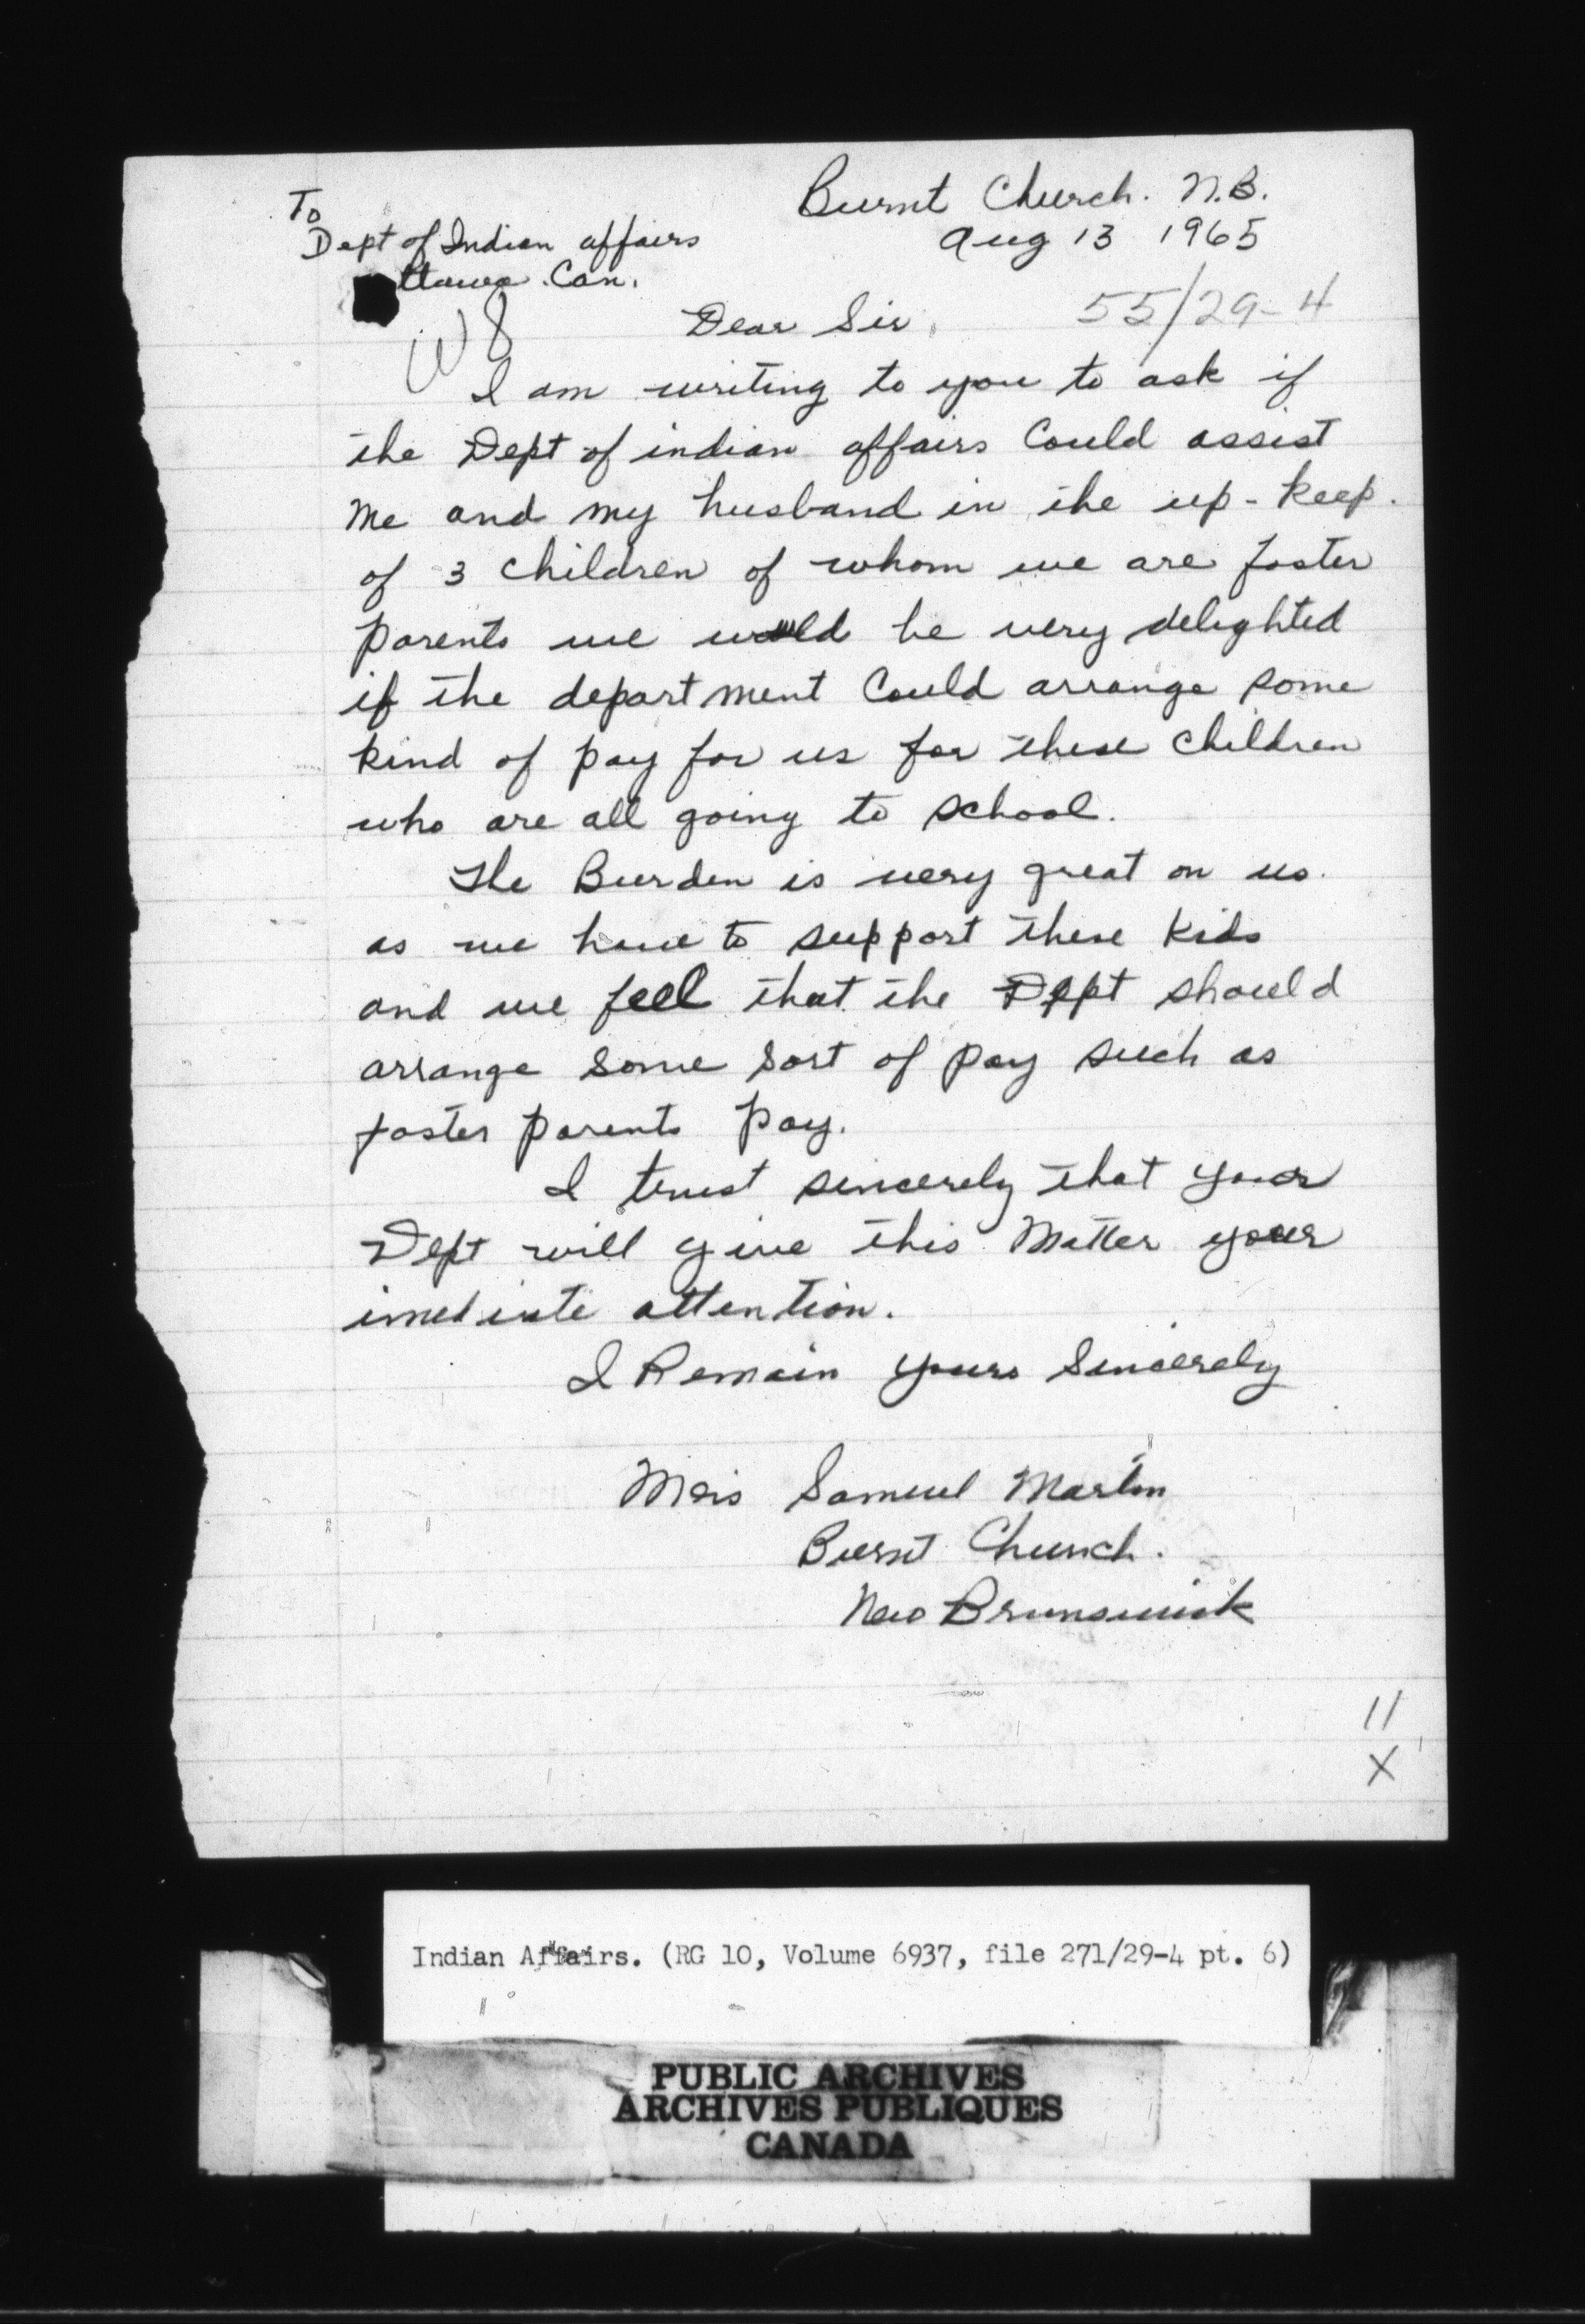 Burnt Church. N.B.
Aug 13 1965
To
Dept of Indian affairs
ttawa. Can.
55/29-4
Dear Sir,
I am writing to you to ask if
the Dept of indian affairs Could assist
me and my husband in the up-keep.
of 3 children of whom we are foster
parents we would be very delighted
if the department Could arrange some
kind of pay for us for these children
who are all going to school.
The Burden is very great on us.
as we have to support these kids
and we feel that the Dept should
arrange some sort of pay such as
foster parents pay.
I trust sincerely that your
Dept will give this Matter your
imediate attention.
I Remain yours Sincerely
Samuel Martin
Burnt Church.
New Brunswick
11
X
Indian Affairs. (RG 10, Volume 6937, file 271/29-4 pt. 6)
PUBLIC ARCHIVES
ARCHIVES PUBLIQUES
CANADA